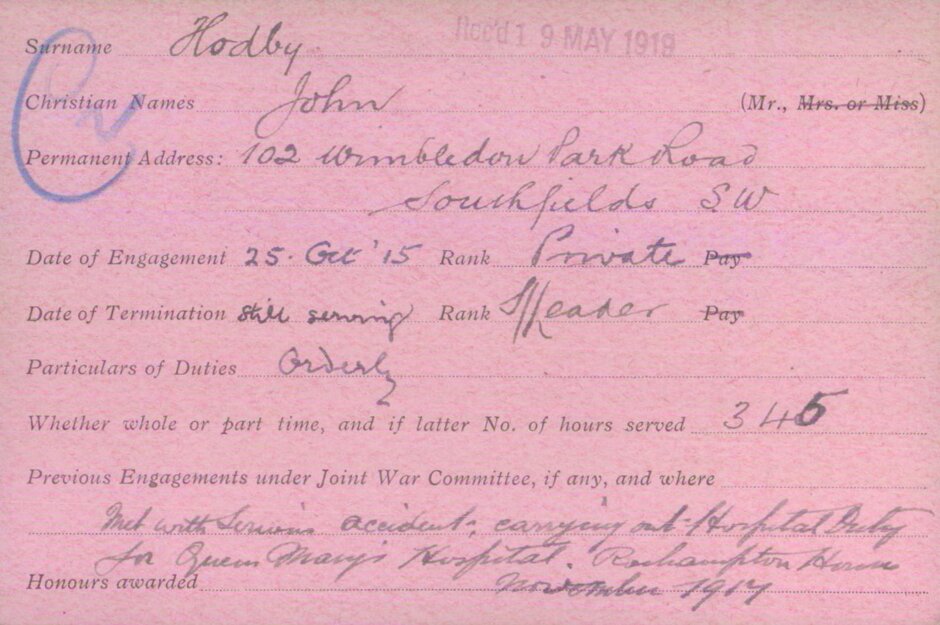 Rec'd 19 MAY 1919
Surname Hodby
Christian Names John (Mr., Mrs. or Miss)
Permanent Address: 102 Wimbledon Park Road
Southfields SW
Date of Engagement 25. Oct '15 Rank Private Pay
Date of Termination still serving Rank Pay
Particulars of Duties Orderly
Whether whole or part time, and if latter No. of hours served 345
Previous Engagements under Joint War Committee, if any, and where
Met with Serious accident; carrying out Hospital Duty
for Queen Mary's Hospital. Roehampton House
Honours awarded November 1917